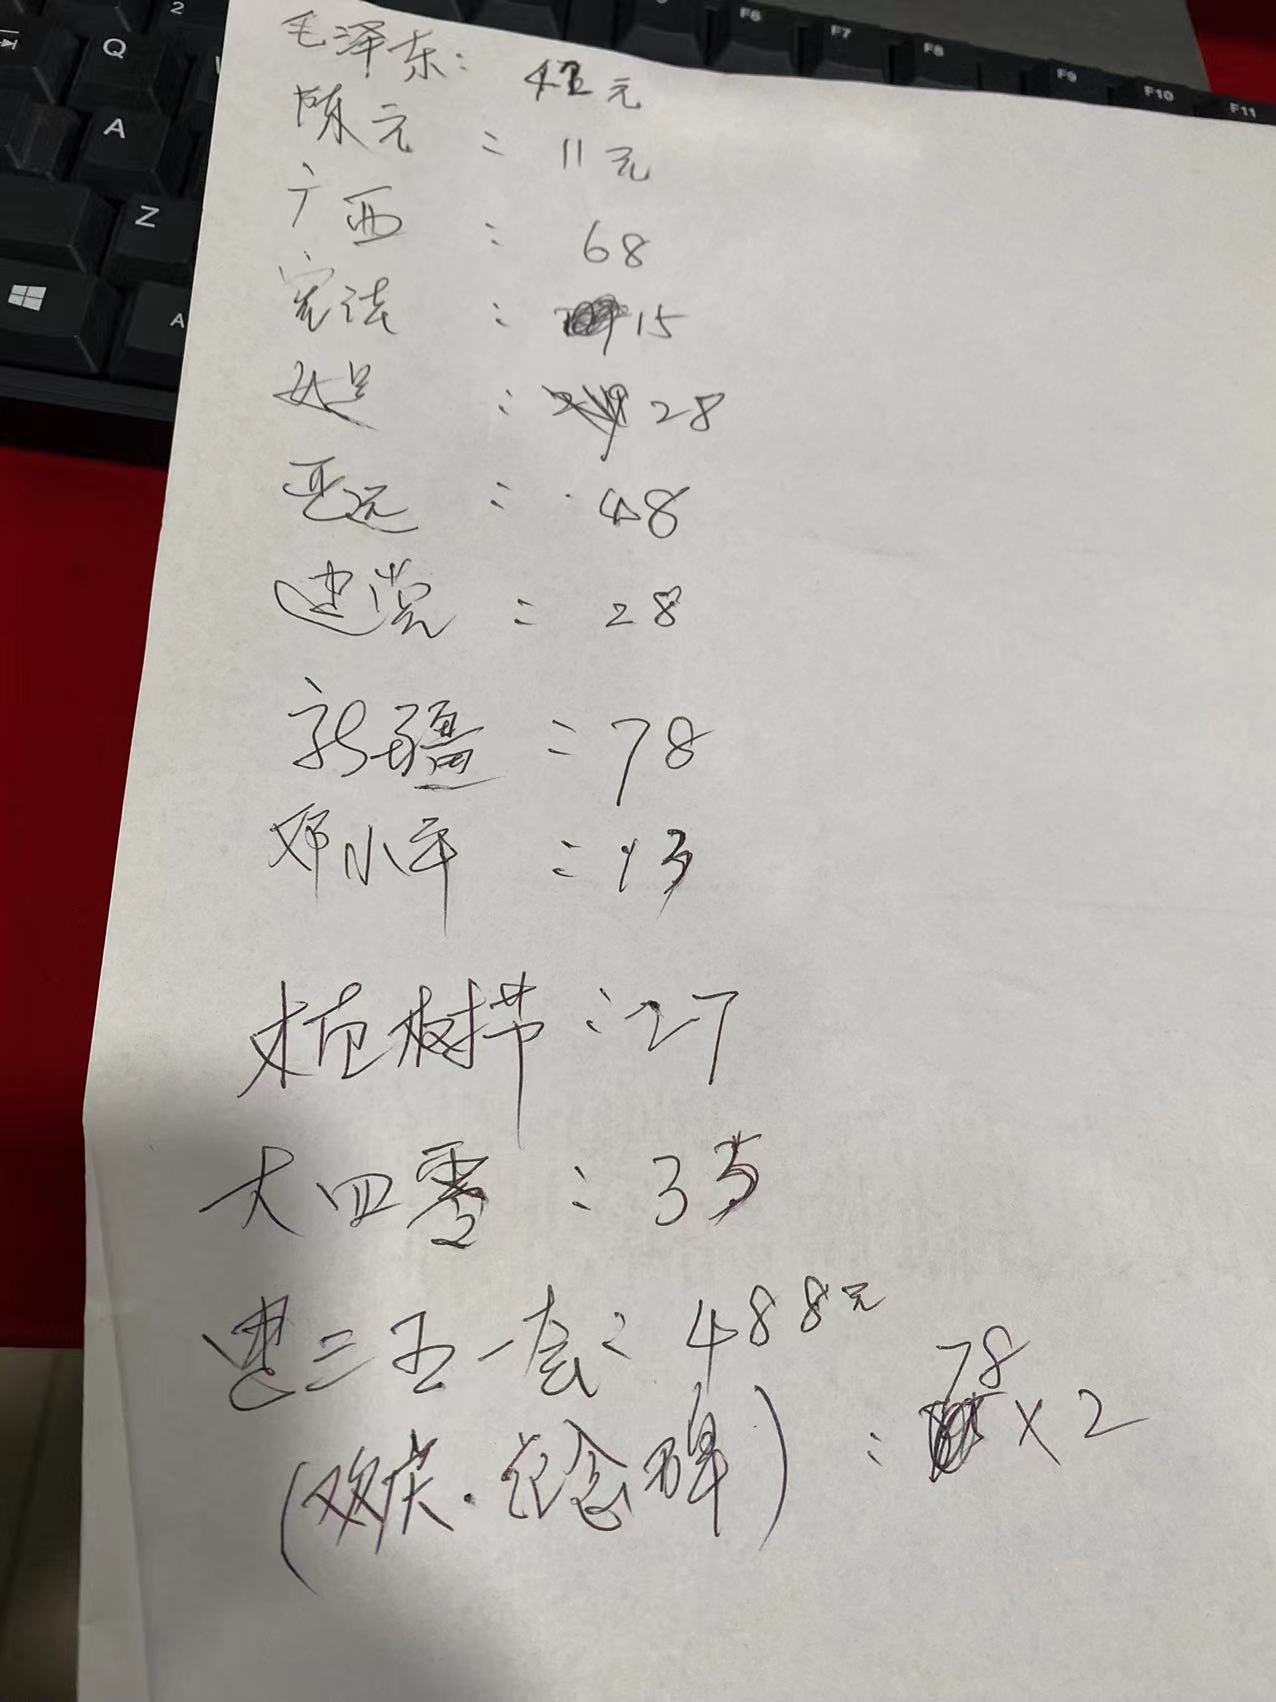 2
F6
F7
F8
F9
F10
F11
Q
A
Z
A
毛泽东: 42元
陈云: 11元
广西: 68
宪法: 15
女足: 28
亚运: 48
建党: 28
新疆: 78
邓小平: 13
植树节: 27
大四零: 35
建三五一套: 488元
(欢庆.纪念碑): 78×2